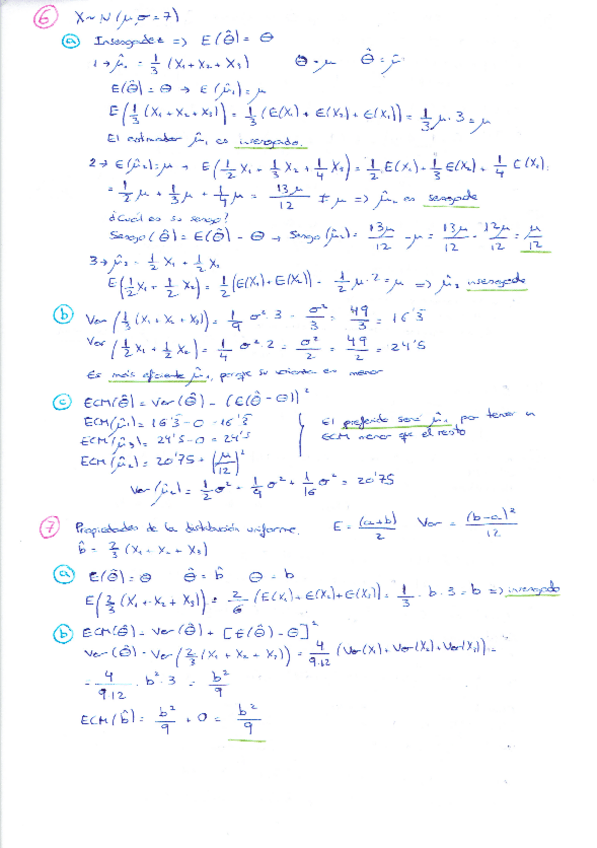 6 X~N(μ, σ=7)
a Insesgadez => E(θ̂) = θ
1→ μ̂₁ = 1/3 (X₁+X₂+X₃) θ=μ θ̂=μ̂
E(θ̂)=θ → E(μ̂₁)=μ
E(1/3 (X₁+X₂+X₃)) = 1/3 (E(X₁)+E(X₂)+E(X₃)) = 1/3 μ·3 = μ
El estimador μ̂₁ es insesgado.
2→ E(μ̂₂)=μ → E(1/2 X₁ + 1/3 X₂ + 1/4 X₃) = 1/2 E(X₁) + 1/3 E(X₂) + 1/4 E(X₃) =
= 1/2 μ + 1/3 μ + 1/4 μ = 13μ/12 ≠ μ => μ̂₂ es sesgado
¿Cuál es su sesgo?
Sesgo(θ̂) = E(θ̂) - θ → Sesgo(μ̂₂) = 13μ/12 - μ = 13μ/12 - 12μ/12 = μ/12
3→ μ̂₃ = 1/2 X₁ + 1/2 X₂
E(1/2 X₁ + 1/2 X₂) = 1/2 (E(X₁)+E(X₂)) = 1/2 μ·2 = μ => μ̂₃ insesgado
b Var(1/3 (X₁+X₂+X₃)) = 1/9 σ²·3 = σ²/3 = 49/3 = 16'3
Var(1/2 X₁ + 1/2 X₂) = 1/4 σ²·2 = σ²/2 = 49/2 = 24'5
Es más eficiente μ̂₁, porque su varianza es menor
c ECM(θ̂) = Var(θ̂) - (E(θ̂ - θ))²
ECM(μ̂₁) = 16'3 - 0 = 16'3
ECM(μ̂₃) = 24'5 - 0 = 24'5
El preferido será μ̂₁ por tener un
ECM menor que el resto
ECM(μ̂₂) = 20'75 + (μ/12)²
Var(μ̂₂) = 1/2 σ² + 1/9 σ² + 1/16 σ² = 20'75
7 Propiedades de la distribución uniforme. E = (a+b)/2 Var = (b-a)²/12
b̂ = 2/3 (X₁+X₂+X₃)
a E(θ̂)=θ θ̂=b̂ θ=b
E(2/3 (X₁+X₂+X₃)) = 2/6 (E(X₁)+E(X₂)+E(X₃)) = 1/3 · b · 3 = b => insesgado
b ECM(θ̂) = Var(θ̂) + [E(θ̂) - θ]²
Var(θ̂) = Var(2/3 (X₁+X₂+X₃)) = 4/9·12 (Var(X₁)+Var(X₂)+Var(X₃)) =
= 4/9·12 · b²·3 = b²/9
ECM(b̂) = b²/9 + 0 = b²/9